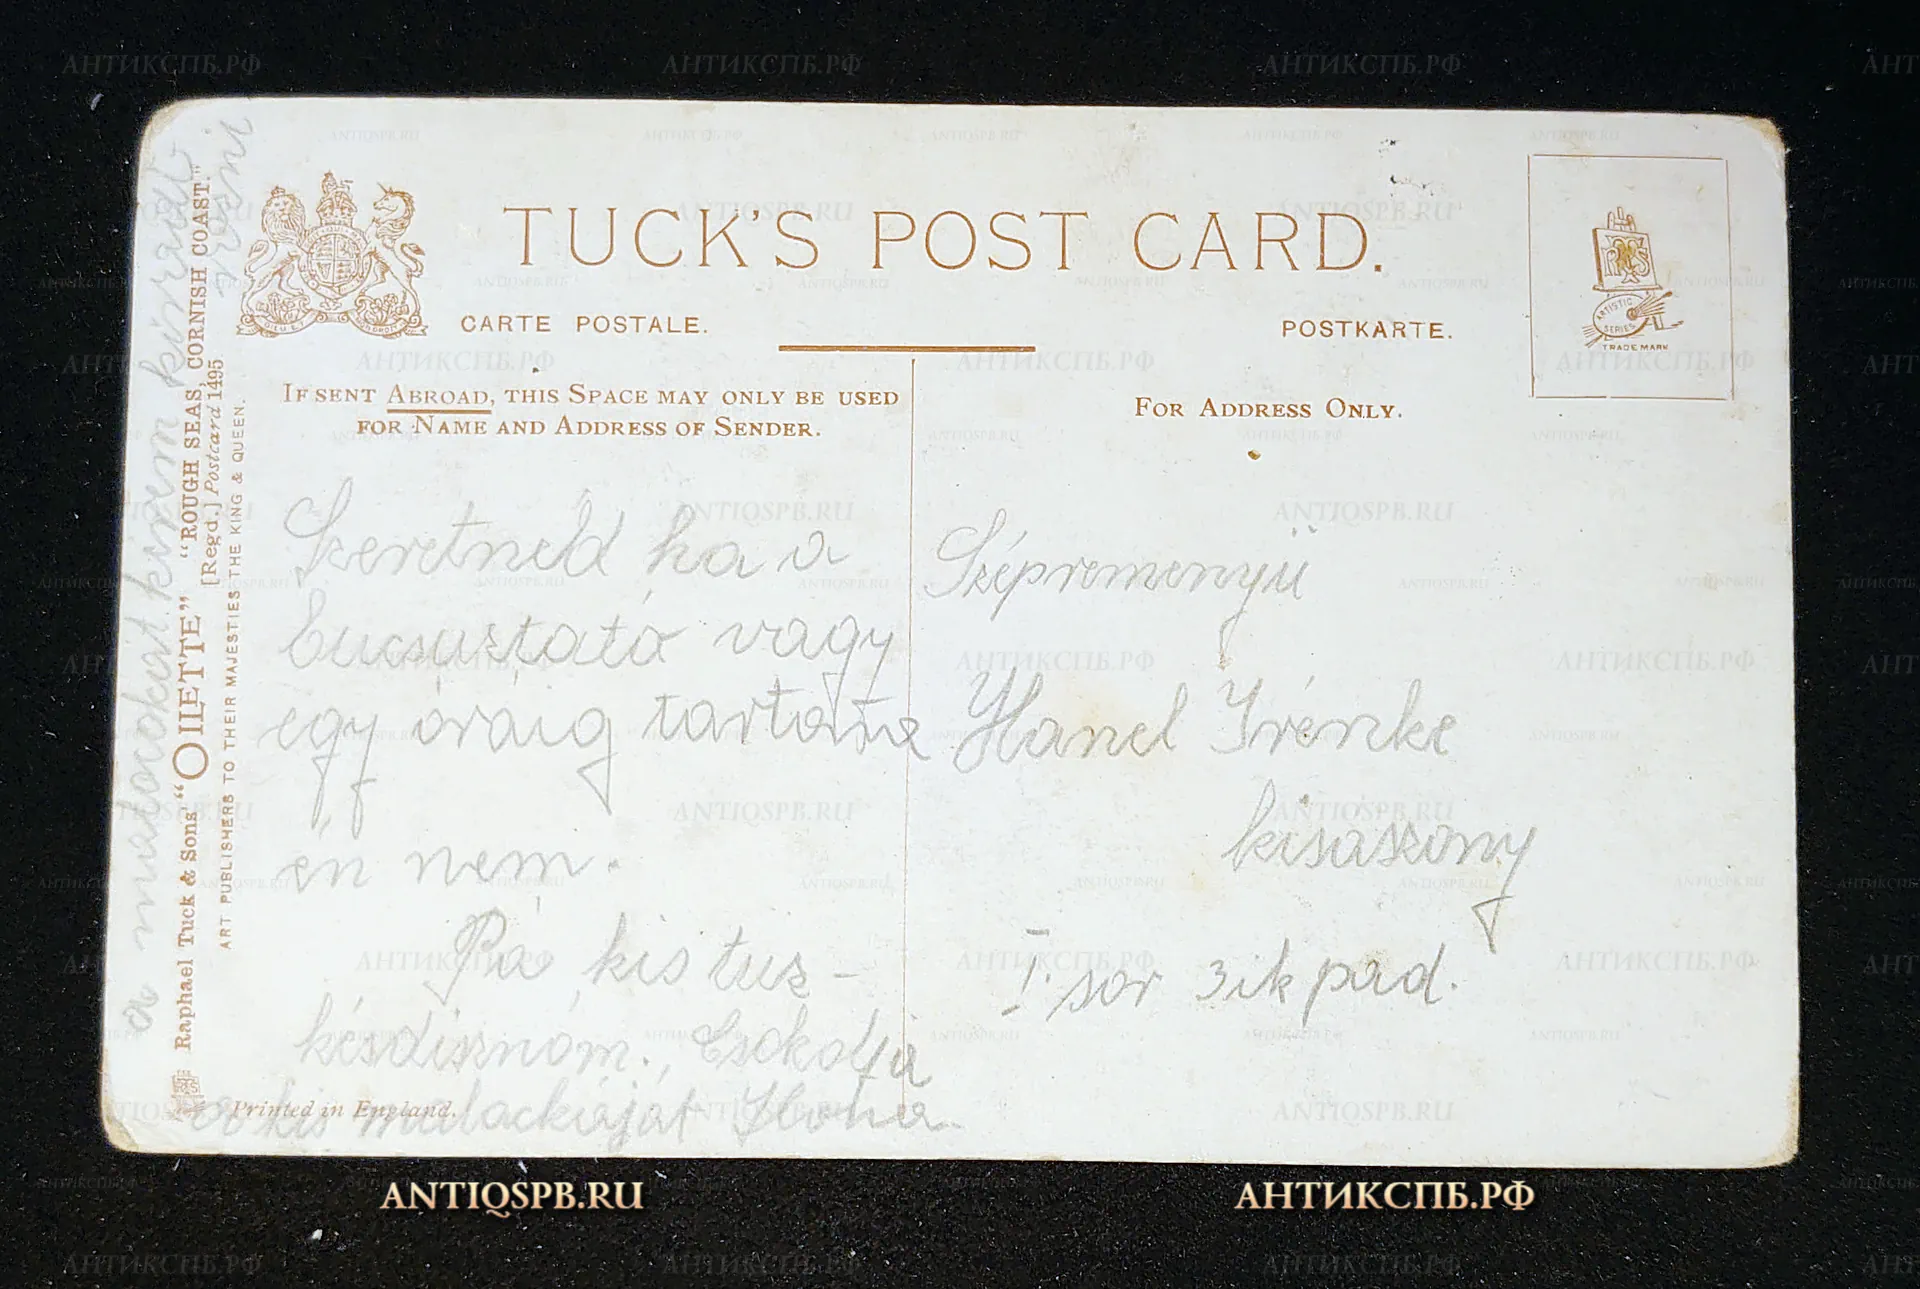 TUCK'S POST CARD.
CARTE POSTALE.
POSTKARTE.
ARTISTIC
SERIES
TRADE MARK
IF SENT ABROAD, THIS SPACE MAY ONLY BE USED
FOR NAME AND ADDRESS OF SENDER.
FOR ADDRESS ONLY.
Szeretnéd ha a
bucsuztató vagy
egy óráig tartana
én nem.
Pá kis tüs-
késdisznóm. Csókolja
a kis malackáját Ilona
a malackát kérem kiradi
rozni
Szépreményü
Hanel Irénke
kisaszony
I. sor 3ik pad.
Raphael Tuck & Sons' "OILETTE" "ROUGH SEAS, CORNISH COAST."
[Regd.] Postcard 1495
ART PUBLISHERS TO THEIR MAJESTIES THE KING & QUEEN.
Printed in England.
ANTIQSPB.RU
АНТИКСПБ.РФ